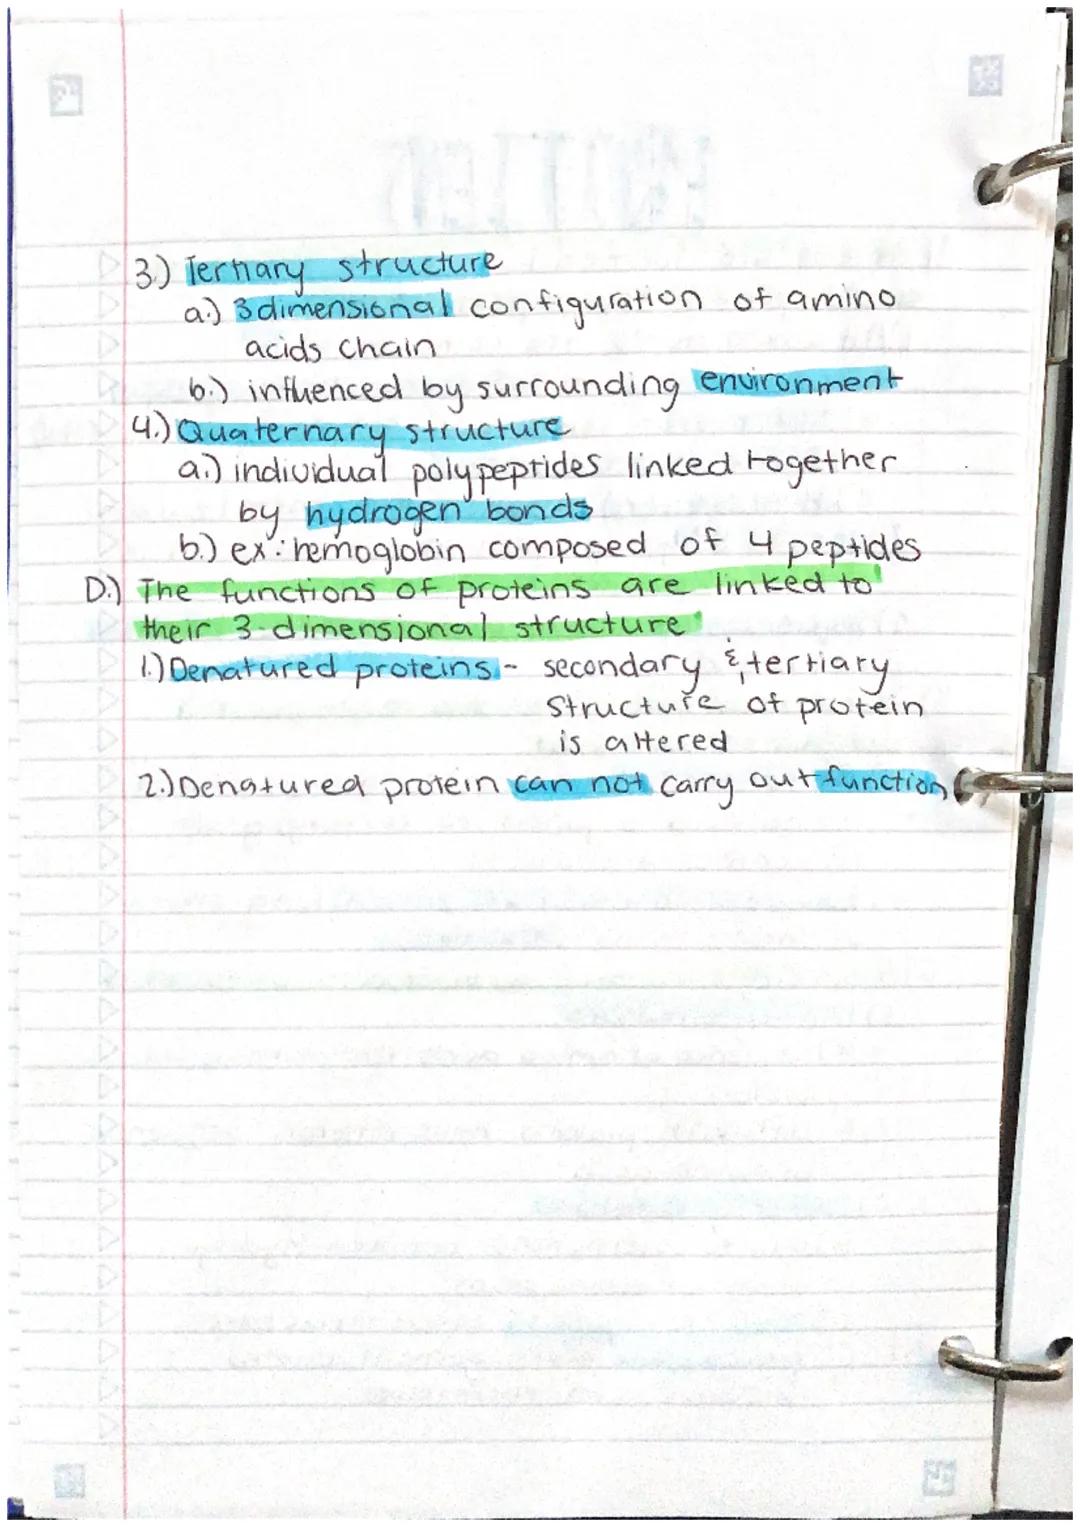 3.) Tertiary structure
a.) 3 dimensional configuration of amino
acids chain
b.) influenced by surrounding environment
4.) Quaternary structure
a.) individual polypeptides linked together
by hydrogen bonds
b.) ex: hemoglobin composed of 4 peptides
D.) The functions of proteins are linked to
their 3-dimensional structure
1.) Denatured proteins - secondary & tertiary
structure of protein
is altered
2.) Denatured protein can not carry out function